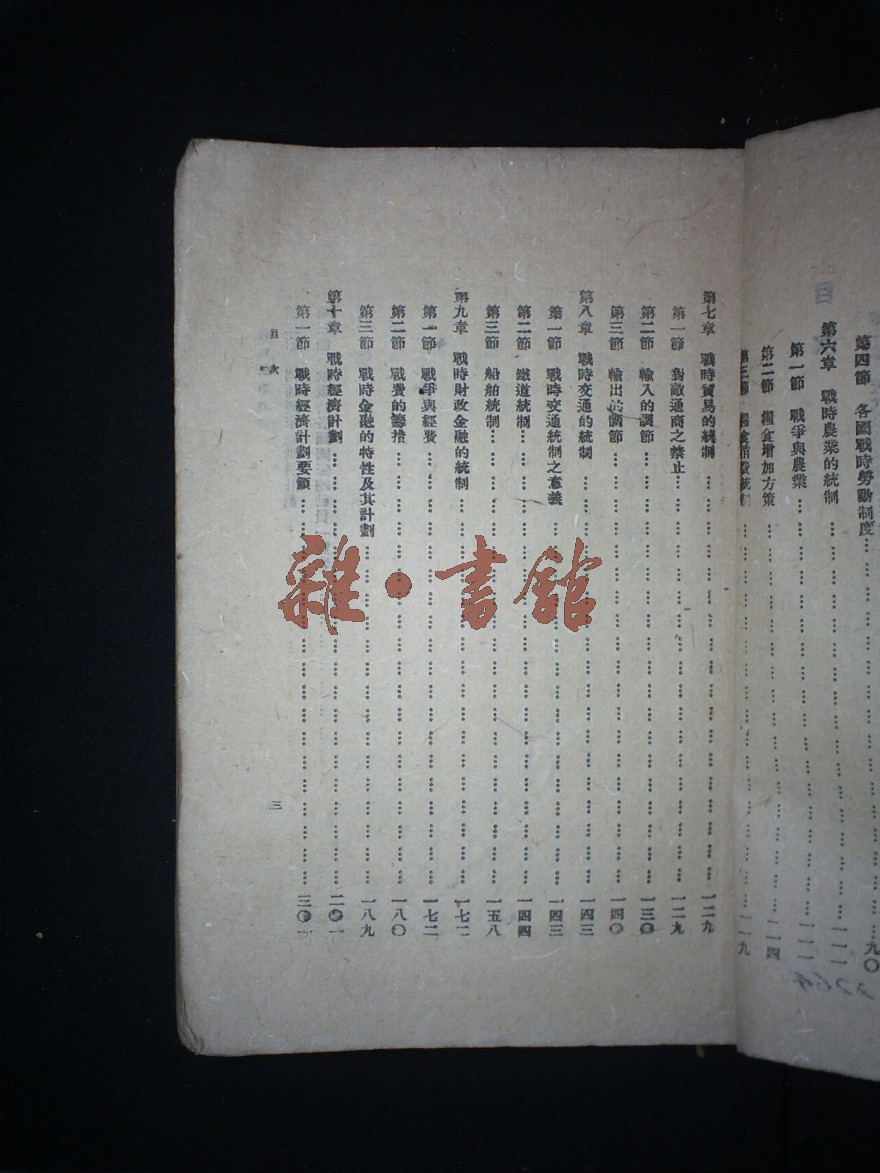 第四節 各國戰時勞動制度……九〇
第六章 戰時農業的統制……一一一
第一節 戰爭與農業……一一一
第二節 糧食增加方策……一一四
第三節 糧食消費統制……一一九
第七章 戰時貿易的統制……一二九
第一節 對敵通商之禁止……一二九
第二節 輸入的調節……一三〇
第三節 輸出的調節……一四〇
第八章 戰時交通的統制……一四三
第一節 戰時交通統制之意義……一四三
第二節 鐵道統制……一四四
第三節 船舶統制……一五八
第九章 戰時財政金融的統制……一七二
第一節 戰爭與經費……一七二
第二節 戰費的籌措……一八〇
第三節 戰時金融的特性及其計劃……一八九
第十章 戰時經濟計劃……二〇一
第一節 戰時經濟計劃要領……二〇一
目次
三
雜·書館